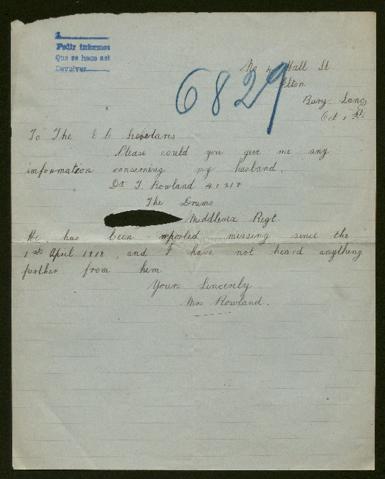 Pedir informes
Que se haca así
Devolver
6829
Wall St
Elton
Bury Lancs
Oct 1st
To The
Please could you give me any
information concerning my husband.
Dr T. Rowland 41318
The Drums
Middlesex Regt.
He has been reported missing since the
1st April 1918, and I have not heard anything
further from him
Yours Sincerely
Mrs Rowland.